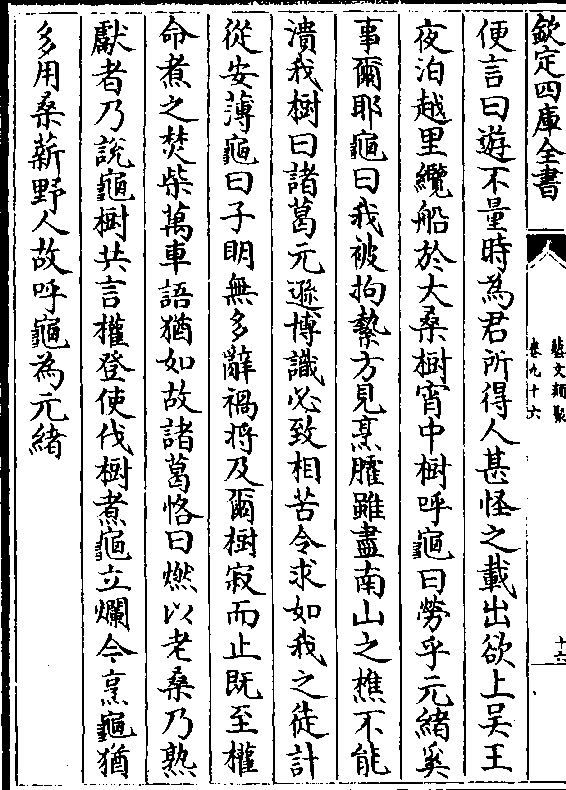 欽定四庫全書
藝文類聚
卷九十六
十六
便言曰遊不量時為君所得人甚怪之載出欲上吴王
夜泊越里纜船於大桑樹宵中樹呼龜曰勞乎元緒奚
事爾耶龜曰我被拘縶方見烹臛雖盡南山之樵不能
潰我樹曰諸葛元遜博識必致相苦令求如我之徒計
從安薄龜曰子明無多辭禍將及爾樹寂而止既至權
命煮之焚柴萬車語猶如故諸葛恪曰燃以老桑乃熟
獻者乃說龜樹共言權登使伐樹煮龜立爛今烹龜猶
多用桑薪野人故呼龜為元緒